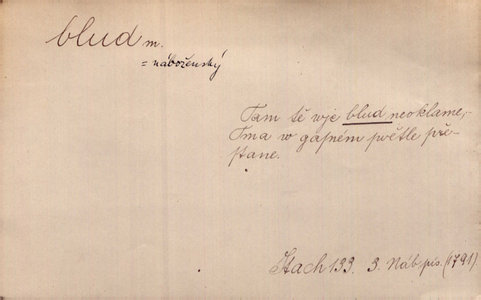 blud m.
= náboženský
Tam tě wje blud neoklame,
Tma w gasném swětle pře-
stane.
Stach 133. 3. Náb. pís. (1791).